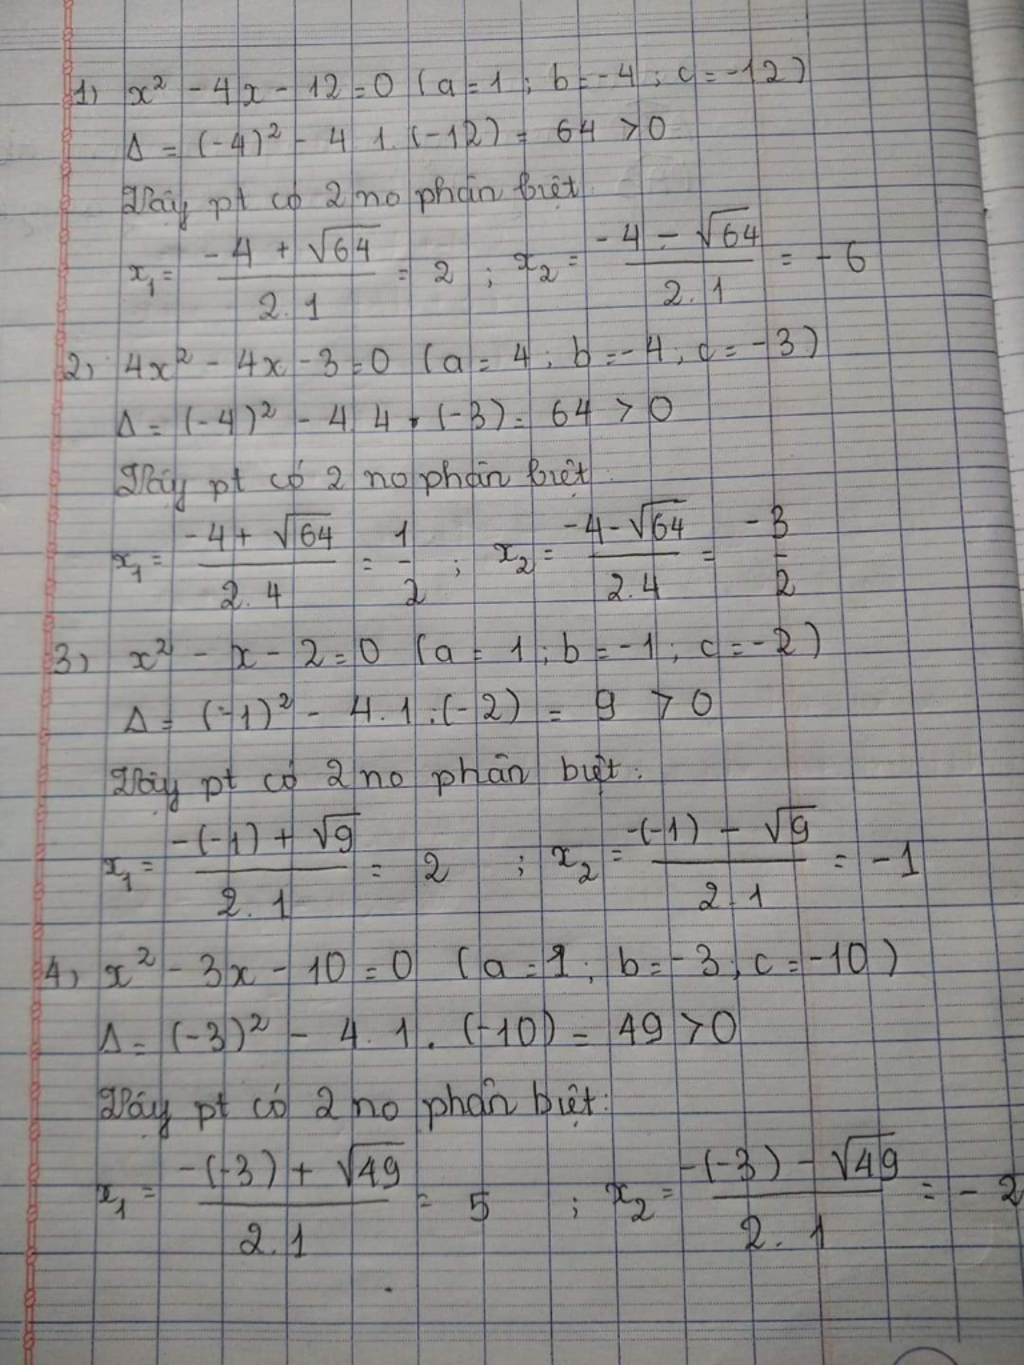 1) x² - 4x - 12 = 0 (a = 1 ; b = -4 ; c = -12)
Δ = (-4)² - 4 1. (-12) = 64 > 0
Vậy pt có 2 no phân biệt
x₁ = (-4 + √64)/(2.1) = 2 ; x₂ = (-4 - √64)/(2.1) = -6
2) 4x² - 4x - 3 = 0 (a = 4 ; b = -4 ; c = -3)
Δ = (-4)² - 4 4 . (-3) = 64 > 0
Vậy pt có 2 no phân biệt.
x₁ = (-4 + √64)/(2.4) = 1/2 ; x₂ = (-4 - √64)/(2.4) = -3/2
3) x² - x - 2 = 0 (a = 1 ; b = -1 ; c = -2)
Δ = (-1)² - 4.1.(-2) = 9 > 0
Vậy pt có 2 no phân biệt:
x₁ = (-(-1) + √9)/(2.1) = 2 ; x₂ = (-(-1) - √9)/(2.1) = -1
4) x² - 3x - 10 = 0 (a = 1 ; b = -3 ; c = -10)
Δ = (-3)² - 4.1.(-10) = 49 > 0
Vậy pt có 2 no phân biệt:
x₁ = (-(-3) + √49)/(2.1) = 5 ; x₂ = (-(-3) - √49)/(2.1) = -2